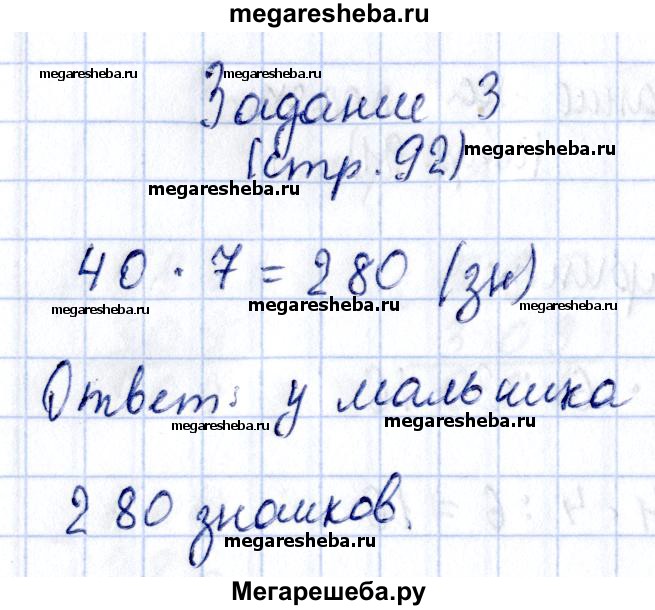 megaresheba.ru
megaresheba.ru megaresheba.ru
Задание 3
(стр. 92) megaresheba.ru
megaresheba.ru
40 · 7 = 280 (зн)
megaresheba.ru megaresheba.ru megaresheba.ru
Ответ: у мальчика
megaresheba.ru megaresheba.ru
280 значков.
megaresheba.ru
Мегарешеба.ру